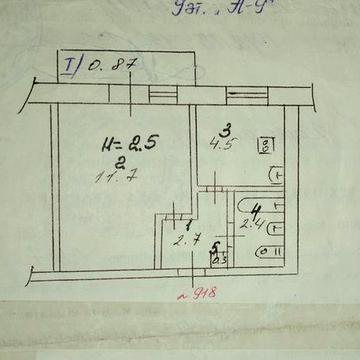 9эт. "А-9"
I/ 0.87
H= 2.5
2
11.7
3
4.5
1
2.7
4
2.4
5
0.3
~918